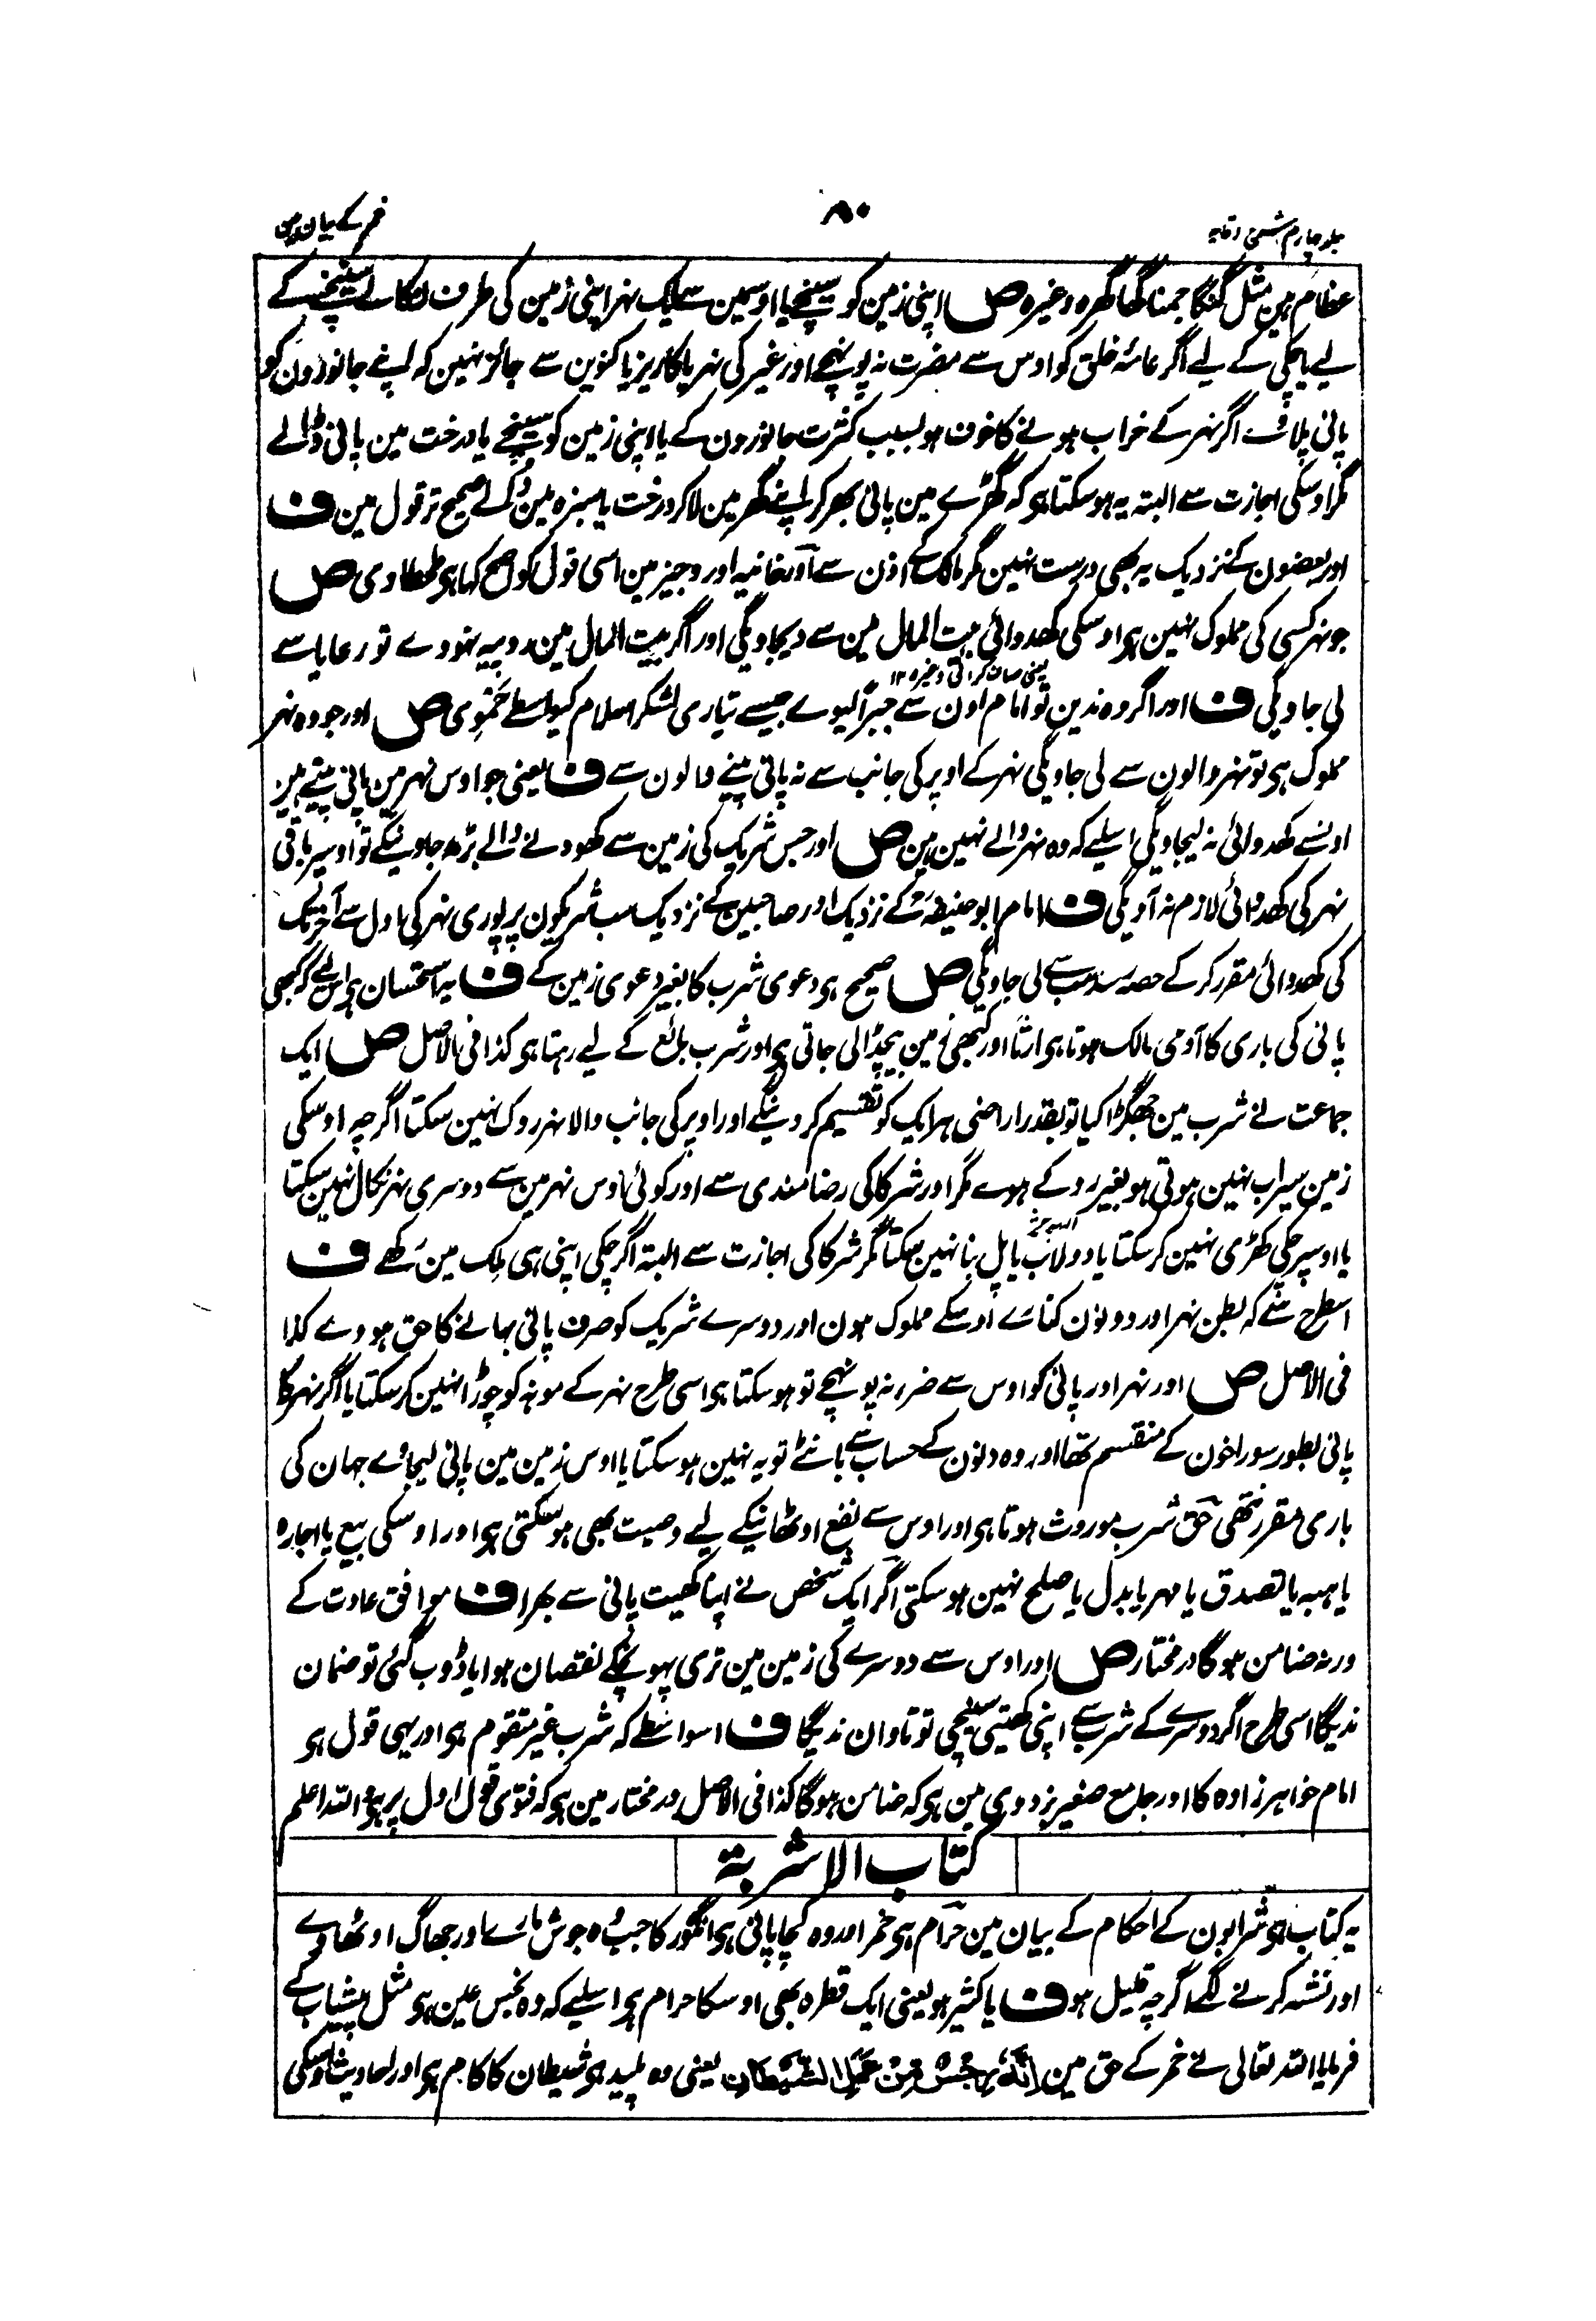 جلد چارم شرح وقایہ
۸۰
خمر کے بیان مین
عظام ہین مثل گنگا جمنا گھا گھرہ وغیرہ ص اپنی زمین کو سینچے یا اوسمین سے ایک نہر اپنی زمین کی طرف نکالے سینچنے کے
لیے یا چکی کے لیے اگر عامۂ خلق کو اوس سے مضرت نہ پونہچے اور غیر کی نہر یا کاریز یا کنوین سے جائز نہین کہ اپنے جانورون کو
پانی پلاوے اگر نہر کے خراب ہونے کا خوف ہو بسبب کثرت جانورون کے یا اپنی زمین کو سینچے یا درخت مین پانی ڈالے
مگر اوسکی اجازت سے البتہ یہ ہو سکتا ہی کہ گھڑے مین پانی بھر کر اپنے گھر مین لا کر درخت یا سبزہ مین ڈالے صحیح تر قول مین ف
اور بعضون کے نزدیک یہ بھی درست نہین مگر مالک کے اذن سے اور خانیہ اور وجیز مین اسی قول کو اصح کہا ہی طحطاوی ص
جو نہر کسی کی مملوک نہین ہی اوسکی کھدوائی بیت المال مین سے دیجاویگی اور اگر بیت المال مین روپیہ نہووے تو رعایا سے
یعنی صاف کرائی وغیرہ ۱۲
لی جاویگی ف اور اگر وہ ندین تو امام اون سے جبراً لیوے جیسے تیاری لشکر اسلام کیواسطے حموی ص اور جو وہ نہر
مملوک ہی تو نہر والون سے لی جاویگی نہر کے اوپر کی جانب سے نہ پانی پینے والون سے ف یعنی جو اوس نہر مین پانی پیتے ہین
اونسے کھدوائی نہ لیجاویگی اسلیے کہ وہ نہر والے نہین ہین ص اور جس شریک کی زمین سے کھودنے والے بڑھ جاوینگے تو اوسپر باقی
نہر کی کھدوائی لازم نہ آویگی ف امام ابو حنیفہؒ کے نزدیک اور صاحبین کے نزدیک سب شریکون پر پوری نہر کی اول سے آخر تک
کی کھدوائی مقرر کر کے حصہ رسد سب سے لی جاویگی ص صحیح ہی دعوی شرب کا بغیر دعوی زمین کے ف یہ استحسان ہی اسلیے کہ کبھی
پانی کی باری کا آدمی مالک ہوتا ہی ارثاً اور کبھی زمین بیچڈالی جاتی ہی اور شرب بائع کے لیے رہتا ہی کذا فی الاصل ص ایک
جماعت نے شرب مین جھگڑا کیا تو بقدر اراضی ہر ایک کو تقسیم کر دینگے اور اوپر کی جانب والا نہر روک نہین سکتا اگرچہ اوسکی
زمین سیراب نہین ہوتی ہو بغیر روکے ہوے مگر اور شرکا کی رضامندی سے اور کوئی اوس نہر مین سے دوسری نہر نکال نہین سکتا
یا اوسپر چکی کھڑی نہین کر سکتا یا دولاب یا پل بنا نہین سکتا مگر شرکا کی اجازت سے البتہ اگر چکی اپنی ہی ملک مین رکھے ف
اسطرح سے کہ بطن نہر اور دونون کنارے اوسکے مملوک ہون اور دوسرے شریک کو صرف پانی بہانے کا حق ہووے کذا
فی الاصل ص اور نہر اور پانی کو اوس سے ضرر نہ پونہچے تو ہو سکتا ہی اسی طرح نہر کے مونہ کو چوڑا نہین کر سکتا یا اگر نہر کا
پانی بطور سوراخون کے منقسم تھا اور وہ دنون کے حساب سے بانٹے تو یہ نہین ہو سکتا یا اوس زمین مین پانی لیجاوے جہان کی
باری مقرر نتھی حق شرب موروث ہوتا ہی اور اوس سے نفع اوٹھانیکے لیے وصیت بھی ہو سکتی ہی اور اوسکی بیع یا اجارہ
یا ہبہ یا تصدق یا مہر یا بدل یا صلح نہین ہو سکتی اگر ایک شخص نے اپنا کھیت پانی سے بھرا ف موافق عادت کے
ورنہ ضامن ہوگا در مختار ص اور اوس سے دوسرے کی زمین مین تری پہونچکے نقصان ہوا یا ڈوب گئی تو ضمان
ندیگا اسی طرح اگر دوسرے کے شرب سے اپنی کھیتی سینچی تو تاوان ندیگا ف اسواسطے کہ شرب غیر متقوم ہی اور یہی قول ہی
امام خواہر زادہ کا اور جامع صغیر بزدوی مین ہی کہ ضامن ہوگا کذا فی الاصل در مختار مین ہی کہ فتوی قول اول پر ہی و اللہ اعلم
کتاب الاشربۃ
یہ کتاب ہی شرابون کے احکام کے بیان مین حرام ہی خمر اور وہ کچا پانی ہی انگور کا جب وہ جوش مارے اور جھاگ اوٹھاوے
اور نشہ کرنے لگے اگرچہ قلیل ہو ف یا کثیر ہو یعنی ایک قطرہ بھی اوسکا حرام ہی اسلیے کہ وہ نجس عین ہی مثل پیشاب کے
فرمایا اللہ تعالی نے خمر کے حق مین اِنَّہٗ رِجْسٌ مِنْ عَمَلِ الشَّیْطَانِ یعنی وہ پلید ہی شیطان کا کام ہی اور احادیث اوسکی